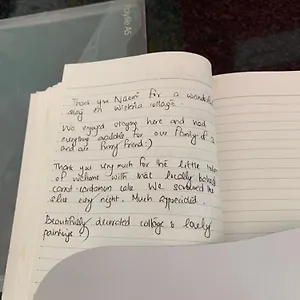 Thank you Naomi for a wonderful
stay in Wisteria cottage.
We enjoyed staying here and had
everything available for our family of 3
and our furry friend :)
Thank you very much for the little
of welcome with that locally baked
carrot-cardamom cake. We savoured the
slice every night. Much appreciated.
Beautifully decorated cottage & lovely
paintings :)